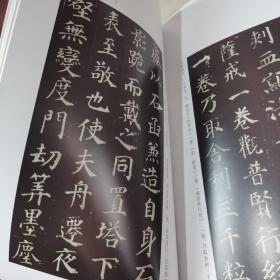 刺血寫
薩戒一卷觀普賢
一卷乃取舍利三千粒
盛以石函兼造自身石
影跪而戴之同置塔下
表至敬也使夫舟遷夜
壑無變度門刧筭墨塵